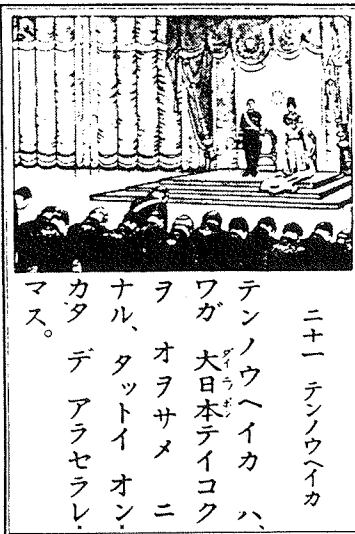 二十一 テンノウヘイカ
テンノウヘイカ ハ、
ワガ 大日本テイコク
ヲ オヲサメ ニ
ナル、タットイ オン
カタ デ アラセラレ
マス。